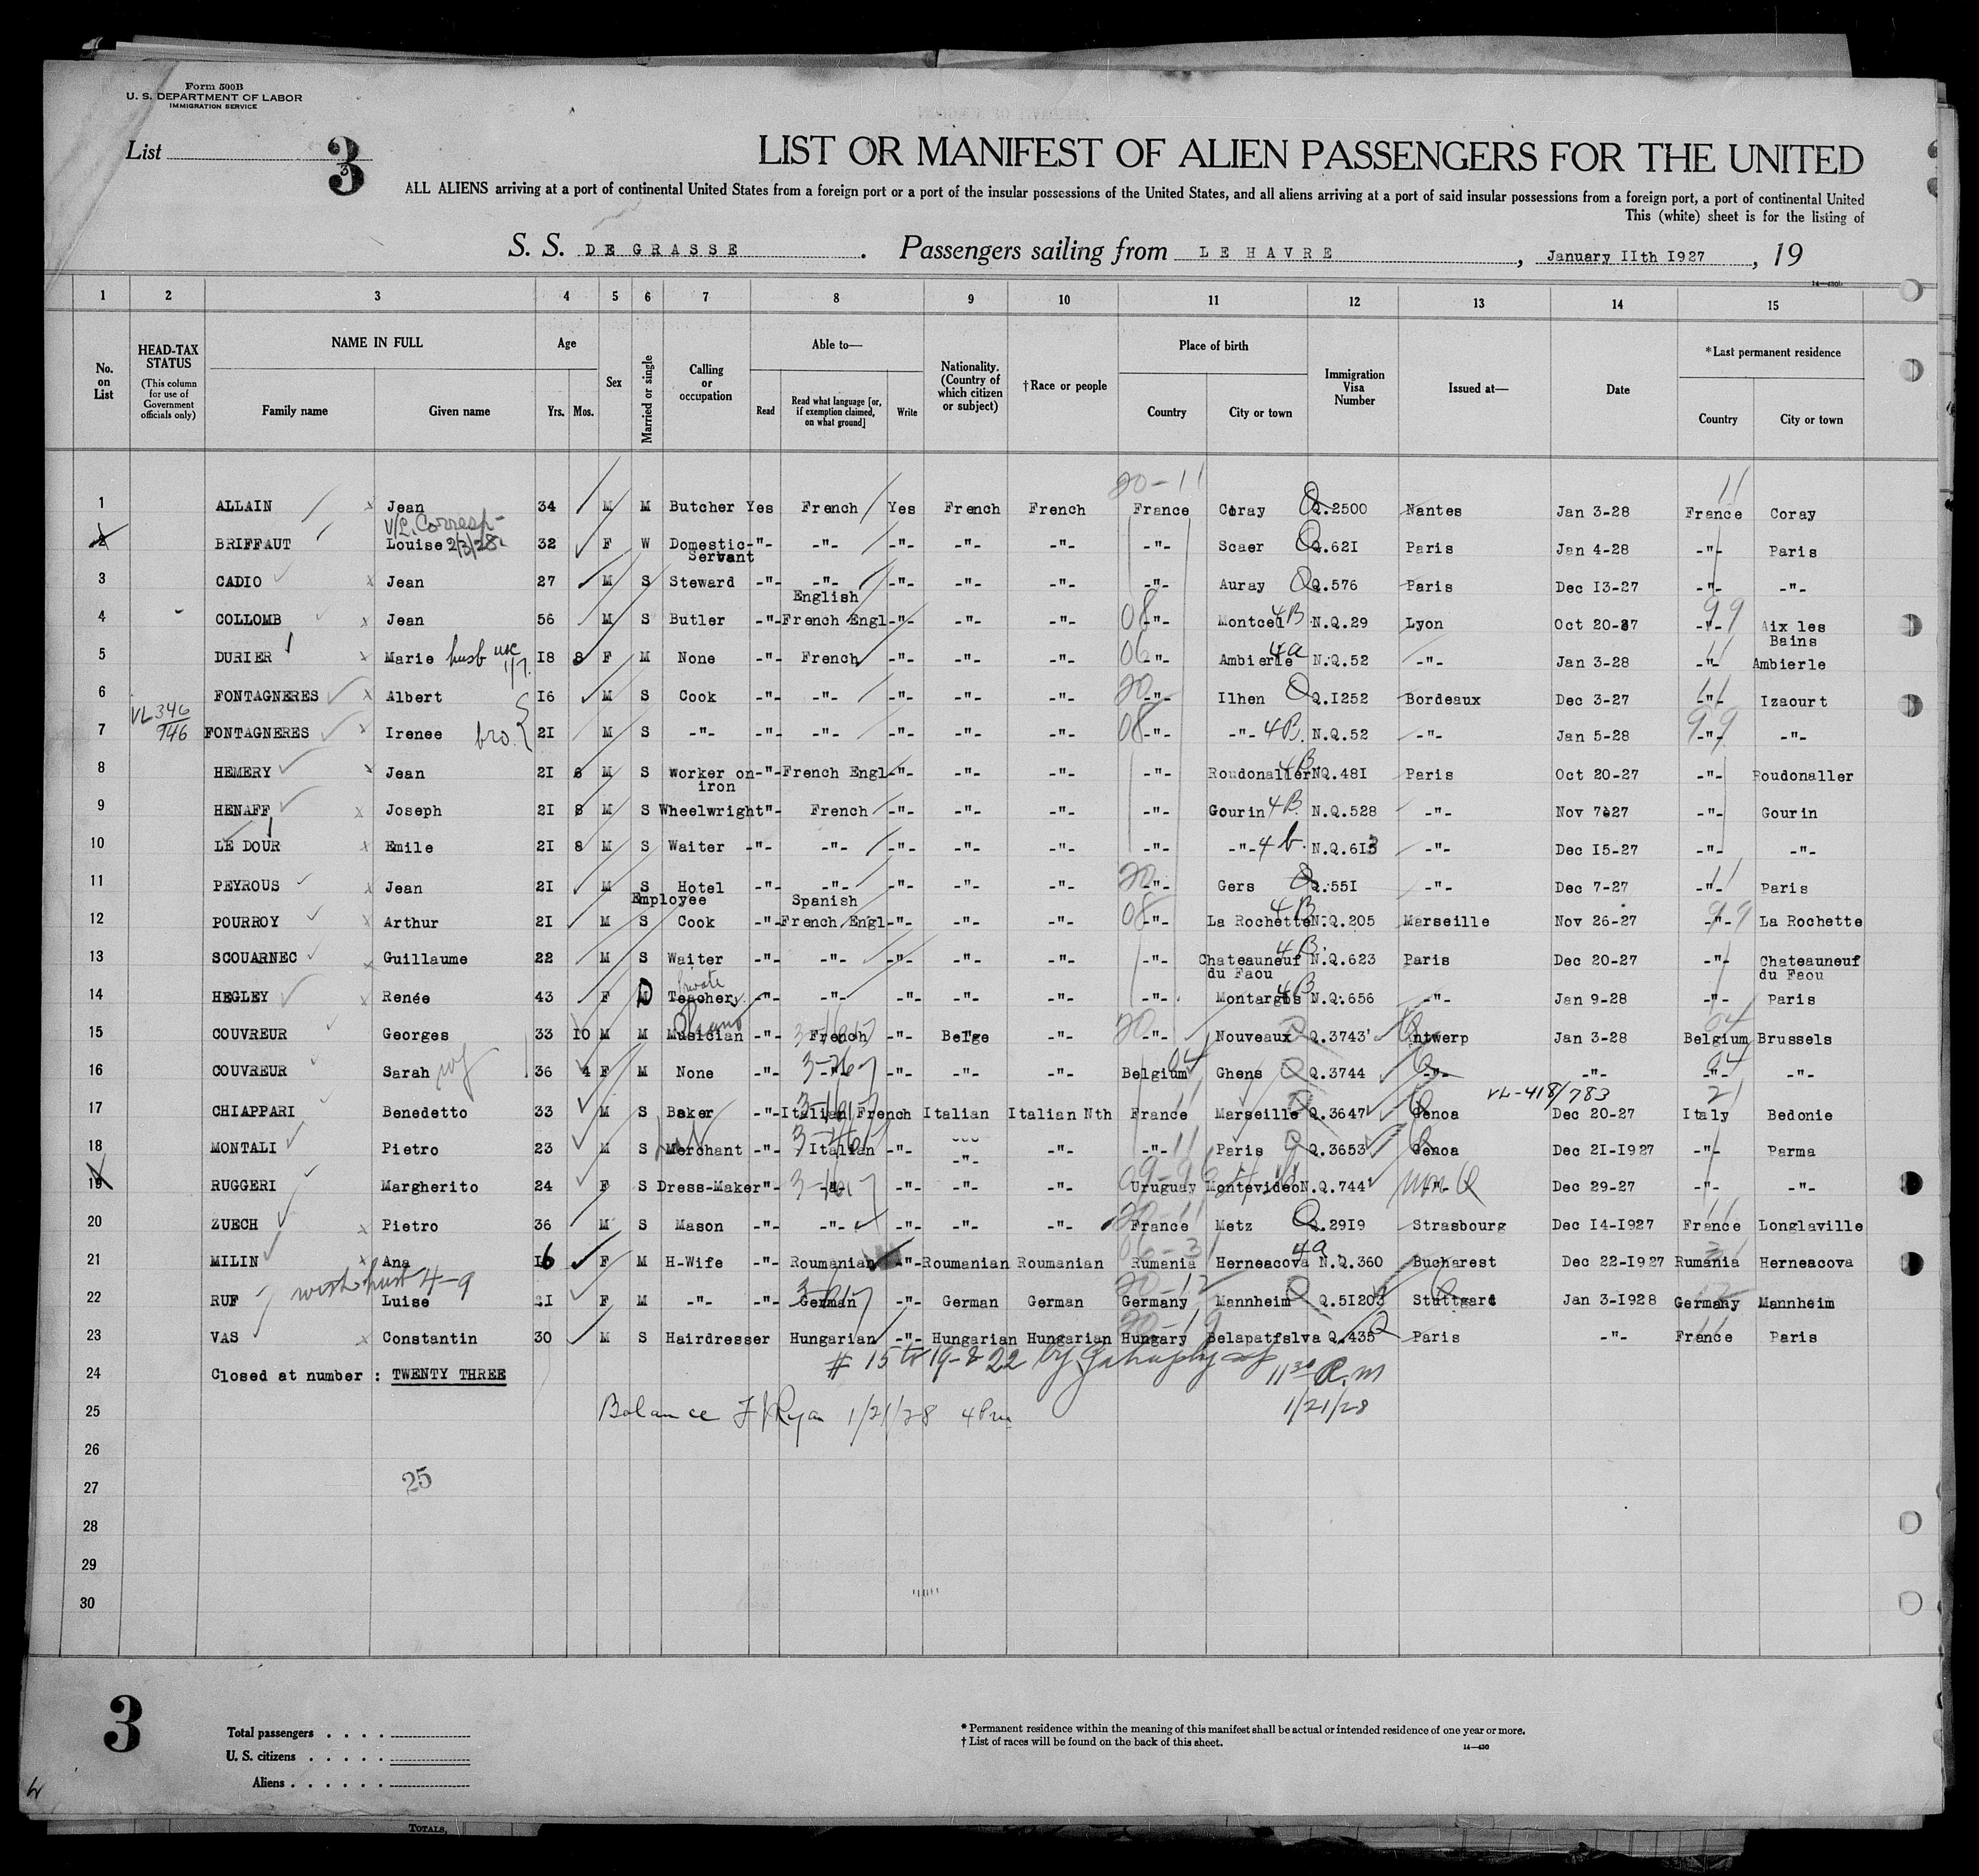 Form 500B
U. S. DEPARTMENT OF LABOR
IMMIGRATION SERVICE
List 3
LIST OR MANIFEST OF ALIEN PASSENGERS FOR THE UNITED
ALL ALIENS arriving at a port of continental United States from a foreign port or a port of the insular possessions of the United States, and all aliens arriving at a port of said insular possessions from a foreign port, a port of continental United
This (white) sheet is for the listing of
S. S. DE GRASSE. Passengers sailing from LE HAVRE, January IIth I927, 19
14—430
1 2 3 4 5 6 7 8 9 10 11 12 13 14 15
No. on List
HEAD-TAX STATUS (This column for use of Government officials only)
NAME IN FULL Family name Given name
Age Yrs. Mos.
Sex
Married or single
Calling or occupation
Able to— Read Read what language [or, if exemption claimed, on what ground] Write
Nationality. (Country of which citizen or subject)
†Race or people
Place of birth Country City or town
Immigration Visa Number
Issued at—
Date
*Last permanent residence Country City or town
20-11 11
1 ALLAIN Jean 34 M M Butcher Yes French Yes French French France Coray Q.2500 Nantes Jan 3-28 France Coray
V/L Corresp-
2 BRIFFAUT Louise 2/3/28 32 F W Domestic Servant -"- -"- -"- -"- -"- -"- Scaer Q.62I Paris Jan 4-28 -"- Paris
3 CADIO Jean 27 M S Steward -"- -"- -"- -"- -"- -"- Auray Q.576 Paris Dec I3-27 -"- -"-
English
4 COLLOMB Jean 56 M S Butler -"- French Engl -"- -"- -"- 08 -"- Montceu 4B N.Q.29 Lyon Oct 20-27 -"- 99 Aix les Bains
5 DURIER Marie husb usc I8 8 F M None -"- French -"- -"- -"- 06 -"- Ambierle 4a N.Q.52 -"- Jan 3-28 -"- Ambierle
6 FONTAGNERES Albert I6 M S Cook -"- -"- -"- -"- -"- 20 -"- Ilhen Q.I252 Bordeaux Dec 3-27 -"- 11 Izaourt
VL 346/946
7 FONTAGNERES Irenee bro. 2I M S -"- -"- -"- -"- -"- -"- 08 -"- -"- 4B. N.Q.52 -"- Jan 5-28 -"- 99 -"-
8 HEMERY Jean 2I 8 M S Worker on iron -"- French Engl -"- -"- -"- -"- Roudonaller 4B NQ.48I Paris Oct 20-27 -"- Roudonaller
9 HENAFF Joseph 2I 8 M S Wheelwright "- French -"- -"- -"- -"- Gourin 4B. N.Q.528 -"- Nov 7-27 -"- Gourin
10 LE DOUR Emile 2I 8 M S Waiter -"- -"- -"- -"- -"- -"- -"- 4b. N.Q.613 -"- Dec I5-27 -"- -"-
11 PEYROUS Jean 2I M S Hotel Employee -"- -"- -"- -"- -"- 20 -"- Gers Q.55I -"- Dec 7-27 -"- 11 Paris
Spanish
12 POURROY Arthur 2I M S Cook -"- French Engl -"- -"- -"- 08 -"- La Rochette 4B N.Q.205 Marseille Nov 26-27 -"- 99 La Rochette
13 SCOUARNEC Guillaume 22 M S Waiter -"- -"- -"- -"- -"- -"- Chateauneuf du Faou 4B. N.Q.623 Paris Dec 20-27 -"- Chateauneuf du Faou
14 HEGLEY Renée 43 F D Private Teacher -"- -"- -"- -"- -"- -"- Montargis 4B N.Q.656 -"- Jan 9-28 -"- Paris
15 COUVREUR Georges 33 I0 M M Musician Piano -"- French -"- Belge -"- 20 -"- Nouveaux Q.3743 Antwerp Jan 3-28 Belgium 04 Brussels
16 COUVREUR Sarah wf 36 4 F M None -"- -"- -"- -"- -"- Belgium 04 Ghens Q.3744 -"- -"- -"- 04 -"-
VL-418/783
17 CHIAPPARI Benedetto 33 M S Baker -"- Italian French Italian Italian Nth France Marseille Q.3647 Genoa Dec 20-27 Italy 21 Bedonie
18 MONTALI Pietro 23 M S Merchant -"- Italian -"- -"- -"- -"- 11 Paris Q.3653 Genoa Dec 2I-I927 -"- Parma
19 RUGGERI Margherito 24 F S Dress-Maker "- -"- -"- -"- -"- Uruguay Montevideo N.Q.744 -"- Dec 29-27 -"- -"-
20 ZUECH Pietro 36 M S Mason -"- -"- -"- -"- 20-11 France Metz Q.29I9 Strasbourg Dec I4-I927 France 11 Longlaville
21 MILIN Ana 16 F M H-Wife -"- Roumanian -"- Roumanian Roumanian Rumania 06-31 Herneacova 4a N.Q.360 Bucharest Dec 22-I927 Rumania Herneacova
22 RUF Luise 2I F M -"- -"- German -"- German German Germany 20-12 Mannheim Q.5I203 Stuttgart Jan 3-I928 Germany 12 Mannheim
23 VAS Constantin 30 M S Hairdresser Hungarian -"- Hungarian Hungarian Hungary Belapatfslva Q.435 Paris -"- France 11 Paris
# 15 to 19-& 22 by
24 Closed at number : TWENTY THREE
11 30 A.M
1/21/28
25 Balance F J Ryan 1/21/28 4 Pm
26
27 25
28
29
30
3
Total passengers
U. S. citizens
Aliens
* Permanent residence within the meaning of this manifest shall be actual or intended residence of one year or more.
† List of races will be found on the back of this sheet.
14—430
TOTALS,